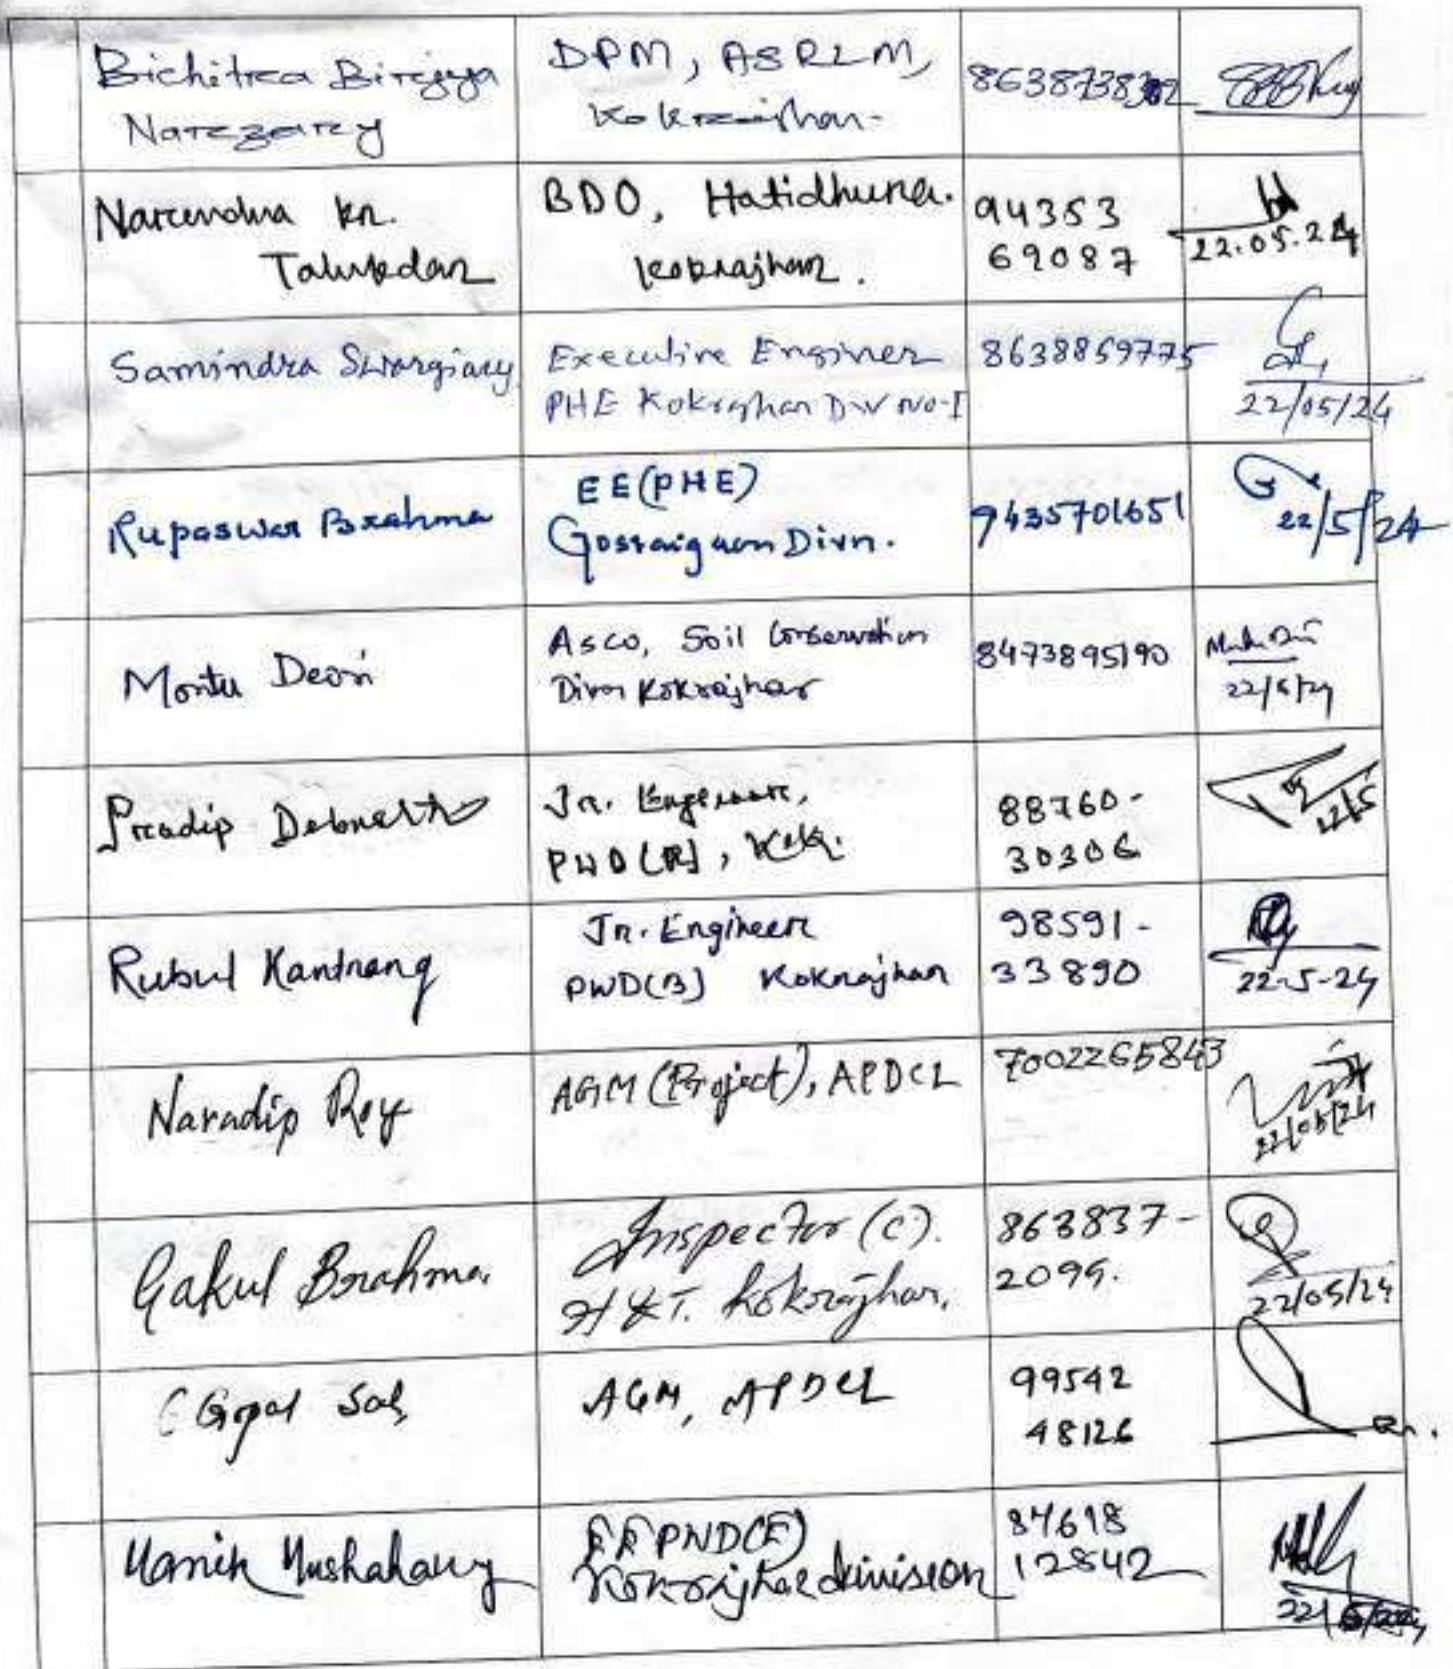 Bichitra Birjya
Narzary
DPM, ASRLM,
Kokrajhar
Narendra Kr.
Talukdar
BDO, Hatidhura.
Kokrajhar.
94353
69087
22.05.24
Samindra Swargiary
Executive Enginer
PHE Kokrajhar Div No-I
8638859775
22/05/24
Rupaswar Brahma
EE(PHE)
Gossaigaon Divn.
9435701651
22/5/24
Montu Deori
ASCO, Soil Conservation
Divn Kokrajhar
8473895190
Pradip Debnath
Jr. Engineer,
PWD(R), Kok.
88760-
30306
22/5
Rubul Kantrang
Jr. Engineer
PWD(B) Kokrajhar
98591-
33890
22-5-24
Naradip Roy
AGM (Project), APDCL
7002265843
22/05/24
Gakul Brahma.
Inspector (C).
H&T. Kokrajhar.
863837-
2099.
22/05/24
Gopal Sah
AGM, APDCL
99542
48126
Manik Mushahary
EE PWD(E)
Kokrajhar division
84618
12842